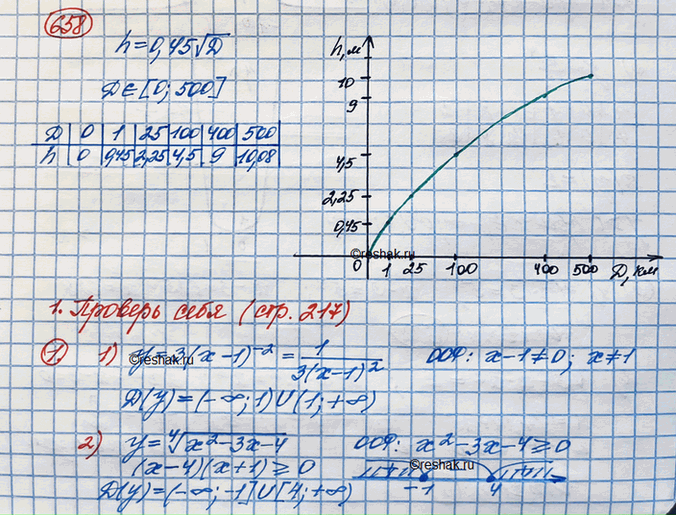 658
h=0,45√D
D∈[0; 500]
D | 0 | 1 | 25 | 100 | 400 | 500
h | 0 | 0,45 | 2,25 | 4,5 | 9 | 10,08
h, м
10
9
4,5
2,25
0,45
0 1 25 100 400 500 D, км
©reshak.ru
1. Проверь себя (стр. 217)
1. 1) y=3(x-1)⁻² = 1/3(x-1)² ООФ: x-1≠0; x≠1
©reshak.ru
D(y)=(-∞; 1)∪(1; +∞)
2) y=⁴√x²-3x-4 ООФ: x²-3x-4≥0
(x-4)(x+1)≥0
-1 4
©reshak.ru
D(y)=(-∞; -1]∪[4; +∞)